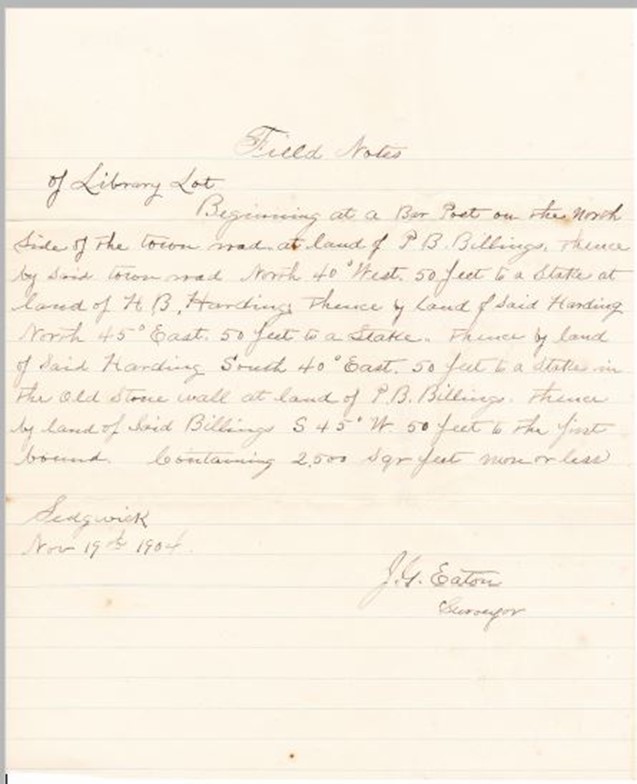 Field Notes
of Library Lot
Beginning at a Bar Post on the North
Side of the town road at land of P. B. Billings, thence
by said town road North 40° West. 50 feet to a Stake at
land of H. B. Harding, thence by land of Said Harding
North 45° East. 50 feet to a Stake. thence by land
of Said Harding South 40° East. 50 feet to a Stake in
the Old Stone wall at land of P. B. Billings. thence
by land of Said Billings S 45° W. 50 feet to the first
bound. Containing 2,500 Sqr feet more or less
Sedgwick
Nov 19th 1904.
J. G. Eaton
Surveyor